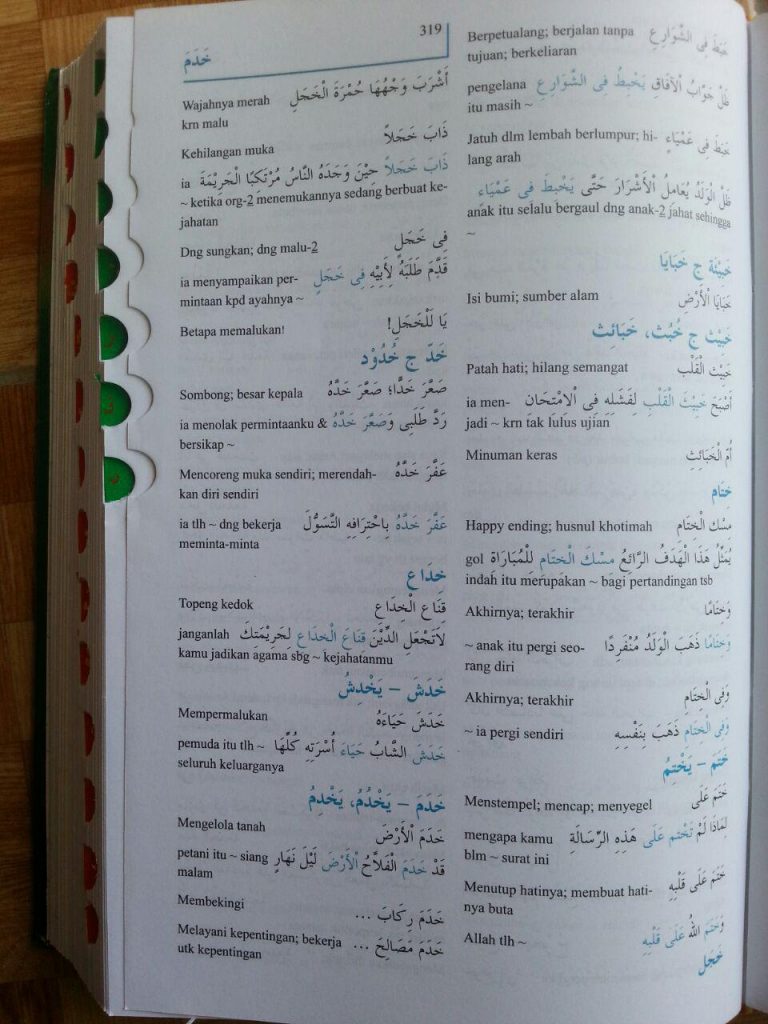 319
خَدَمَ
خَبَطَ فِى الشَّوَارِعِ Berpetualang; berjalan tanpa
tujuan; berkeliaran
ظَلَّ جَوَّابُ اْلآفَاقِ يَخْبِطُ فِى الشَّوَارِعِ pengelana
itu masih ~
خَبَطَ فِى عَمْيَاءٍ Jatuh dlm lembah berlumpur; hi-
lang arah
ظَلَّ الْوَلَدُ يُعَامِلُ اْلأَشْرَارَ حَتَّى يَخْبِطَ فِى عَمْيَاء
anak itu selalu bergaul dng anak-2 jahat sehingga
~
خَبِيْئَة ج خَبَايَا
خَبَايَا اْلأَرْضِ Isi bumi; sumber alam
خَبِيْث ج خُبُث، خَبَائِث
خَبِيْث الْقَلْب Patah hati; hilang semangat
أَصْبَحَ خَبِيْثَ الْقَلْبِ لِفَشَلِهِ فِى اْلامْتِحَانِ ia men-
jadi ~ krn tak lulus ujian
أُمّ الْخَبَائِثِ Minuman keras
خِتَام
مِسْك الْخِتَامِ Happy ending; husnul khotimah
يُمَثِّلُ هَذَا الْهَدَفُ الرَّائِعُ مِسْكَ الْخِتَامِ لِلْمُبَارَاةِ gol
indah itu merupakan ~ bagi pertandingan tsb
وَخِتَامًا Akhirnya; terakhir
وَخِتَامًا ذَهَبَ الْوَلَدُ مُنْفَرِدًا ~ anak itu pergi seo-
rang diri
وَفِى الْخِتَامِ Akhirnya; terakhir
وَفِى الْخِتَامِ ذَهَبَ بِنَفْسِهِ ~ ia pergi sendiri
خَتَمَ – يَخْتِمُ
خَتَمَ عَلَى Menstempel; mencap; menyegel
لِمَاذَا لَمْ تَخْتِم عَلَى هَذِهِ الرِّسَالَةِ mengapa kamu
blm ~ surat ini
خَتَمَ عَلَى قَلْبِهِ Menutup hatinya; membuat hati-
nya buta
وَخَتَمَ اللهُ عَلَى قَلْبِهِ Allah tlh ~
خَجَل
أَشْرَبَ وَجْهُهَا حُمْرَةَ الْخَجَلِ Wajahnya merah
krn malu
ذَابَ خَجَلاً Kehilangan muka
ذَابَ خَجَلاً حِيْنَ وَجَدَهُ النَّاسُ مُرْتَكِبًا الْجَرِيْمَةَ ia
~ ketika org-2 menemukannya sedang berbuat ke-
jahatan
فِى خَجَلٍ Dng sungkan; dng malu-2
قَدَّمَ طَلَبَهُ لِأَبِيْهِ فِى خَجَلٍ ia menyampaikan per-
mintaan kpd ayahnya ~
يَا لَلْخَجَلِ! Betapa memalukan!
خَدّ ج خُدُوْد
صَعَّرَ خَدًّا؛ صَعَّرَ خَدَّهُ Sombong; besar kepala
رَدَّ طَلَبِى وَصَعَّرَ خَدَّهُ ia menolak permintaanku &
bersikap ~
عَفَّرَ خَدَّهُ Mencoreng muka sendiri; merendah-
kan diri sendiri
عَفَّرَ خَدَّهُ بِاحْتِرَافِهِ التَّسَوُّلَ ia tlh ~ dng bekerja
meminta-minta
خِدَاع
قِنَاع الْخِدَاعِ Topeng kedok
لاَتَجْعَلِ الدِّيْنَ قِنَاعَ الْخِدَاعِ لِجَرِيْمَتِكَ janganlah
kamu jadikan agama sbg ~ kejahatanmu
خَدَشَ – يَخْدِشُ
خَدَشَ حَيَاءَهُ Mempermalukan
خَدَشَ الشَّابُ حَيَاءَ أُسْرَتِهِ كُلَّهَا pemuda itu tlh ~
seluruh keluarganya
خَدَمَ – يَخْدُمُ، يَخْدِمُ
خَدَمَ اْلأَرْضَ Mengelola tanah
قَدْ خَدَمَ الْفَلاَّحُ اْلأَرْضَ لَيْلَ نَهَارٍ petani itu ~ siang
malam
خَدَمَ رِكَابَ ... Membekingi
خَدَمَ مَصَالِحَ ... Melayani kepentingan; bekerja
utk kepentingan